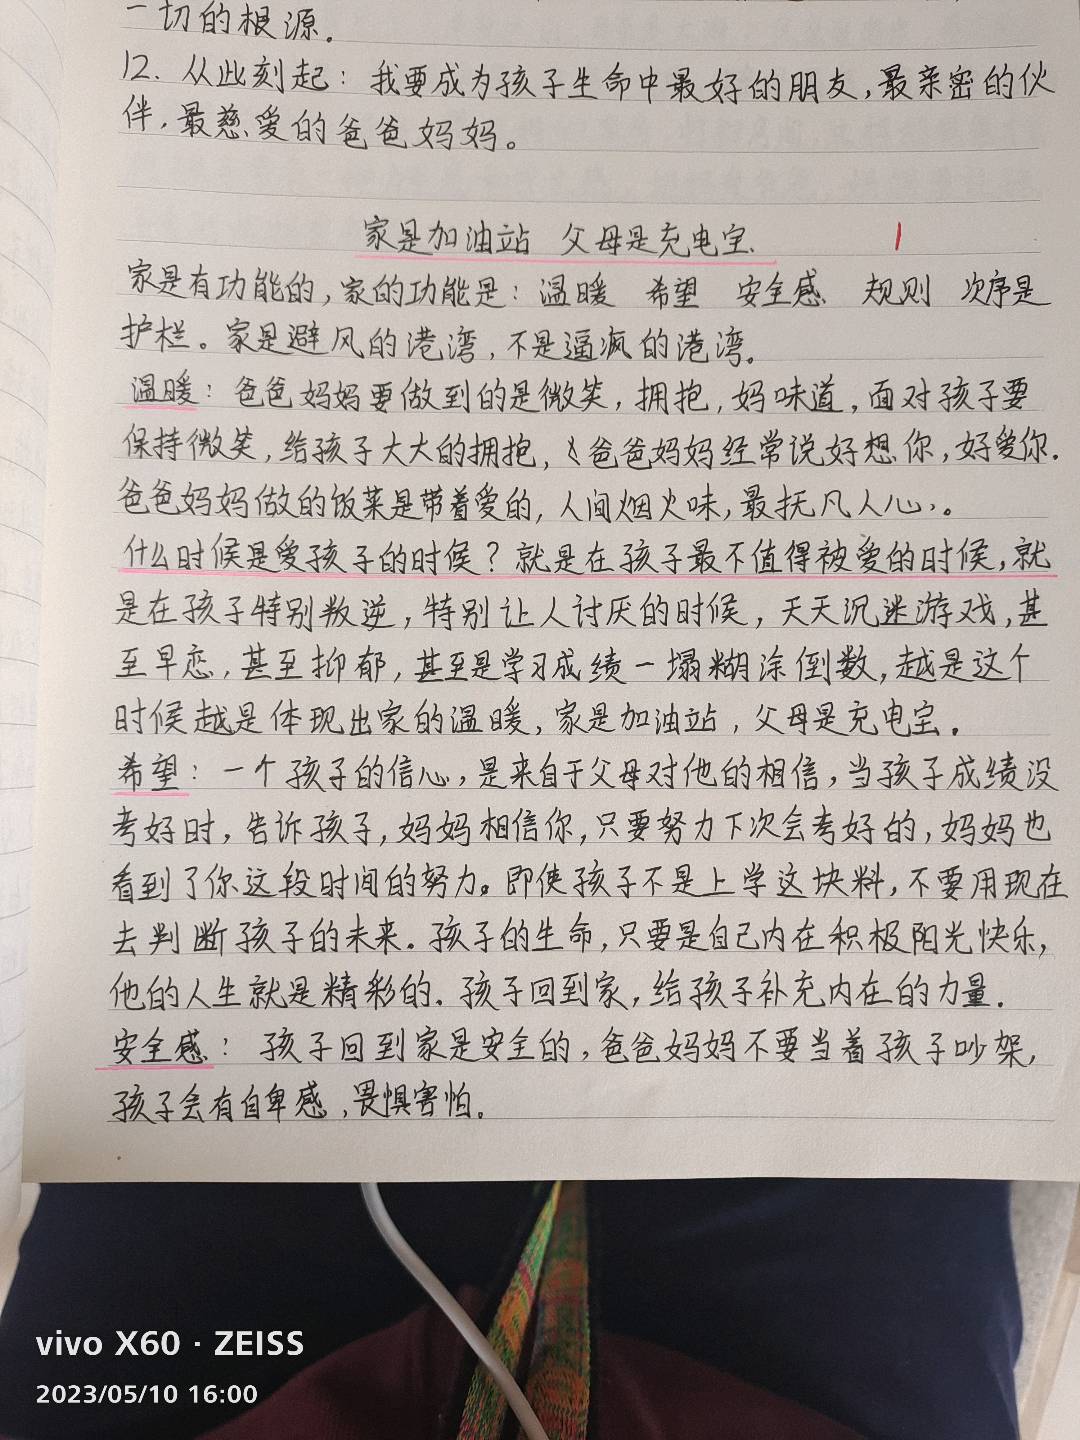 一切的根源。
12. 从此刻起：我要成为孩子生命中最好的朋友，最亲密的伙
伴，最慈爱的爸爸妈妈。
家是加油站 父母是充电宝、 1
家是有功能的，家的功能是：温暖 希望 安全感、规则 次序是
护栏。家是避风的港湾，不是逼疯的港湾。
温暖：爸爸妈妈要做到的是微笑，拥抱，妈味道，面对孩子要
保持微笑，给孩子大大的拥抱，爸爸妈妈经常说好想你，好爱你.
爸爸妈妈做的饭菜是带着爱的，人间烟火味，最抚凡人心，。
什么时候是爱孩子的时候？就是在孩子最不值得被爱的时候，就
是在孩子特别叛逆，特别让人讨厌的时候，天天沉迷游戏，甚
至早恋，甚至抑郁，甚至是学习成绩一塌糊涂倒数，越是这个
时候越是体现出家的温暖，家是加油站，父母是充电宝。
希望：一个孩子的信心，是来自于父母对他的相信，当孩子成绩没
考好时，告诉孩子，妈妈相信你，只要努力下次会考好的，妈妈也
看到了你这段时间的努力。即使孩子不是上学这块料，不要用现在
去判断孩子的未来。孩子的生命，只要是自己内在积极阳光快乐，
他的人生就是精彩的。孩子回到家，给孩子补充内在的力量.
安全感：孩子回到家是安全的，爸爸妈妈不要当着孩子吵架，
孩子会有自卑感，畏惧害怕。
vivo X60 · ZEISS
2023/05/10 16:00